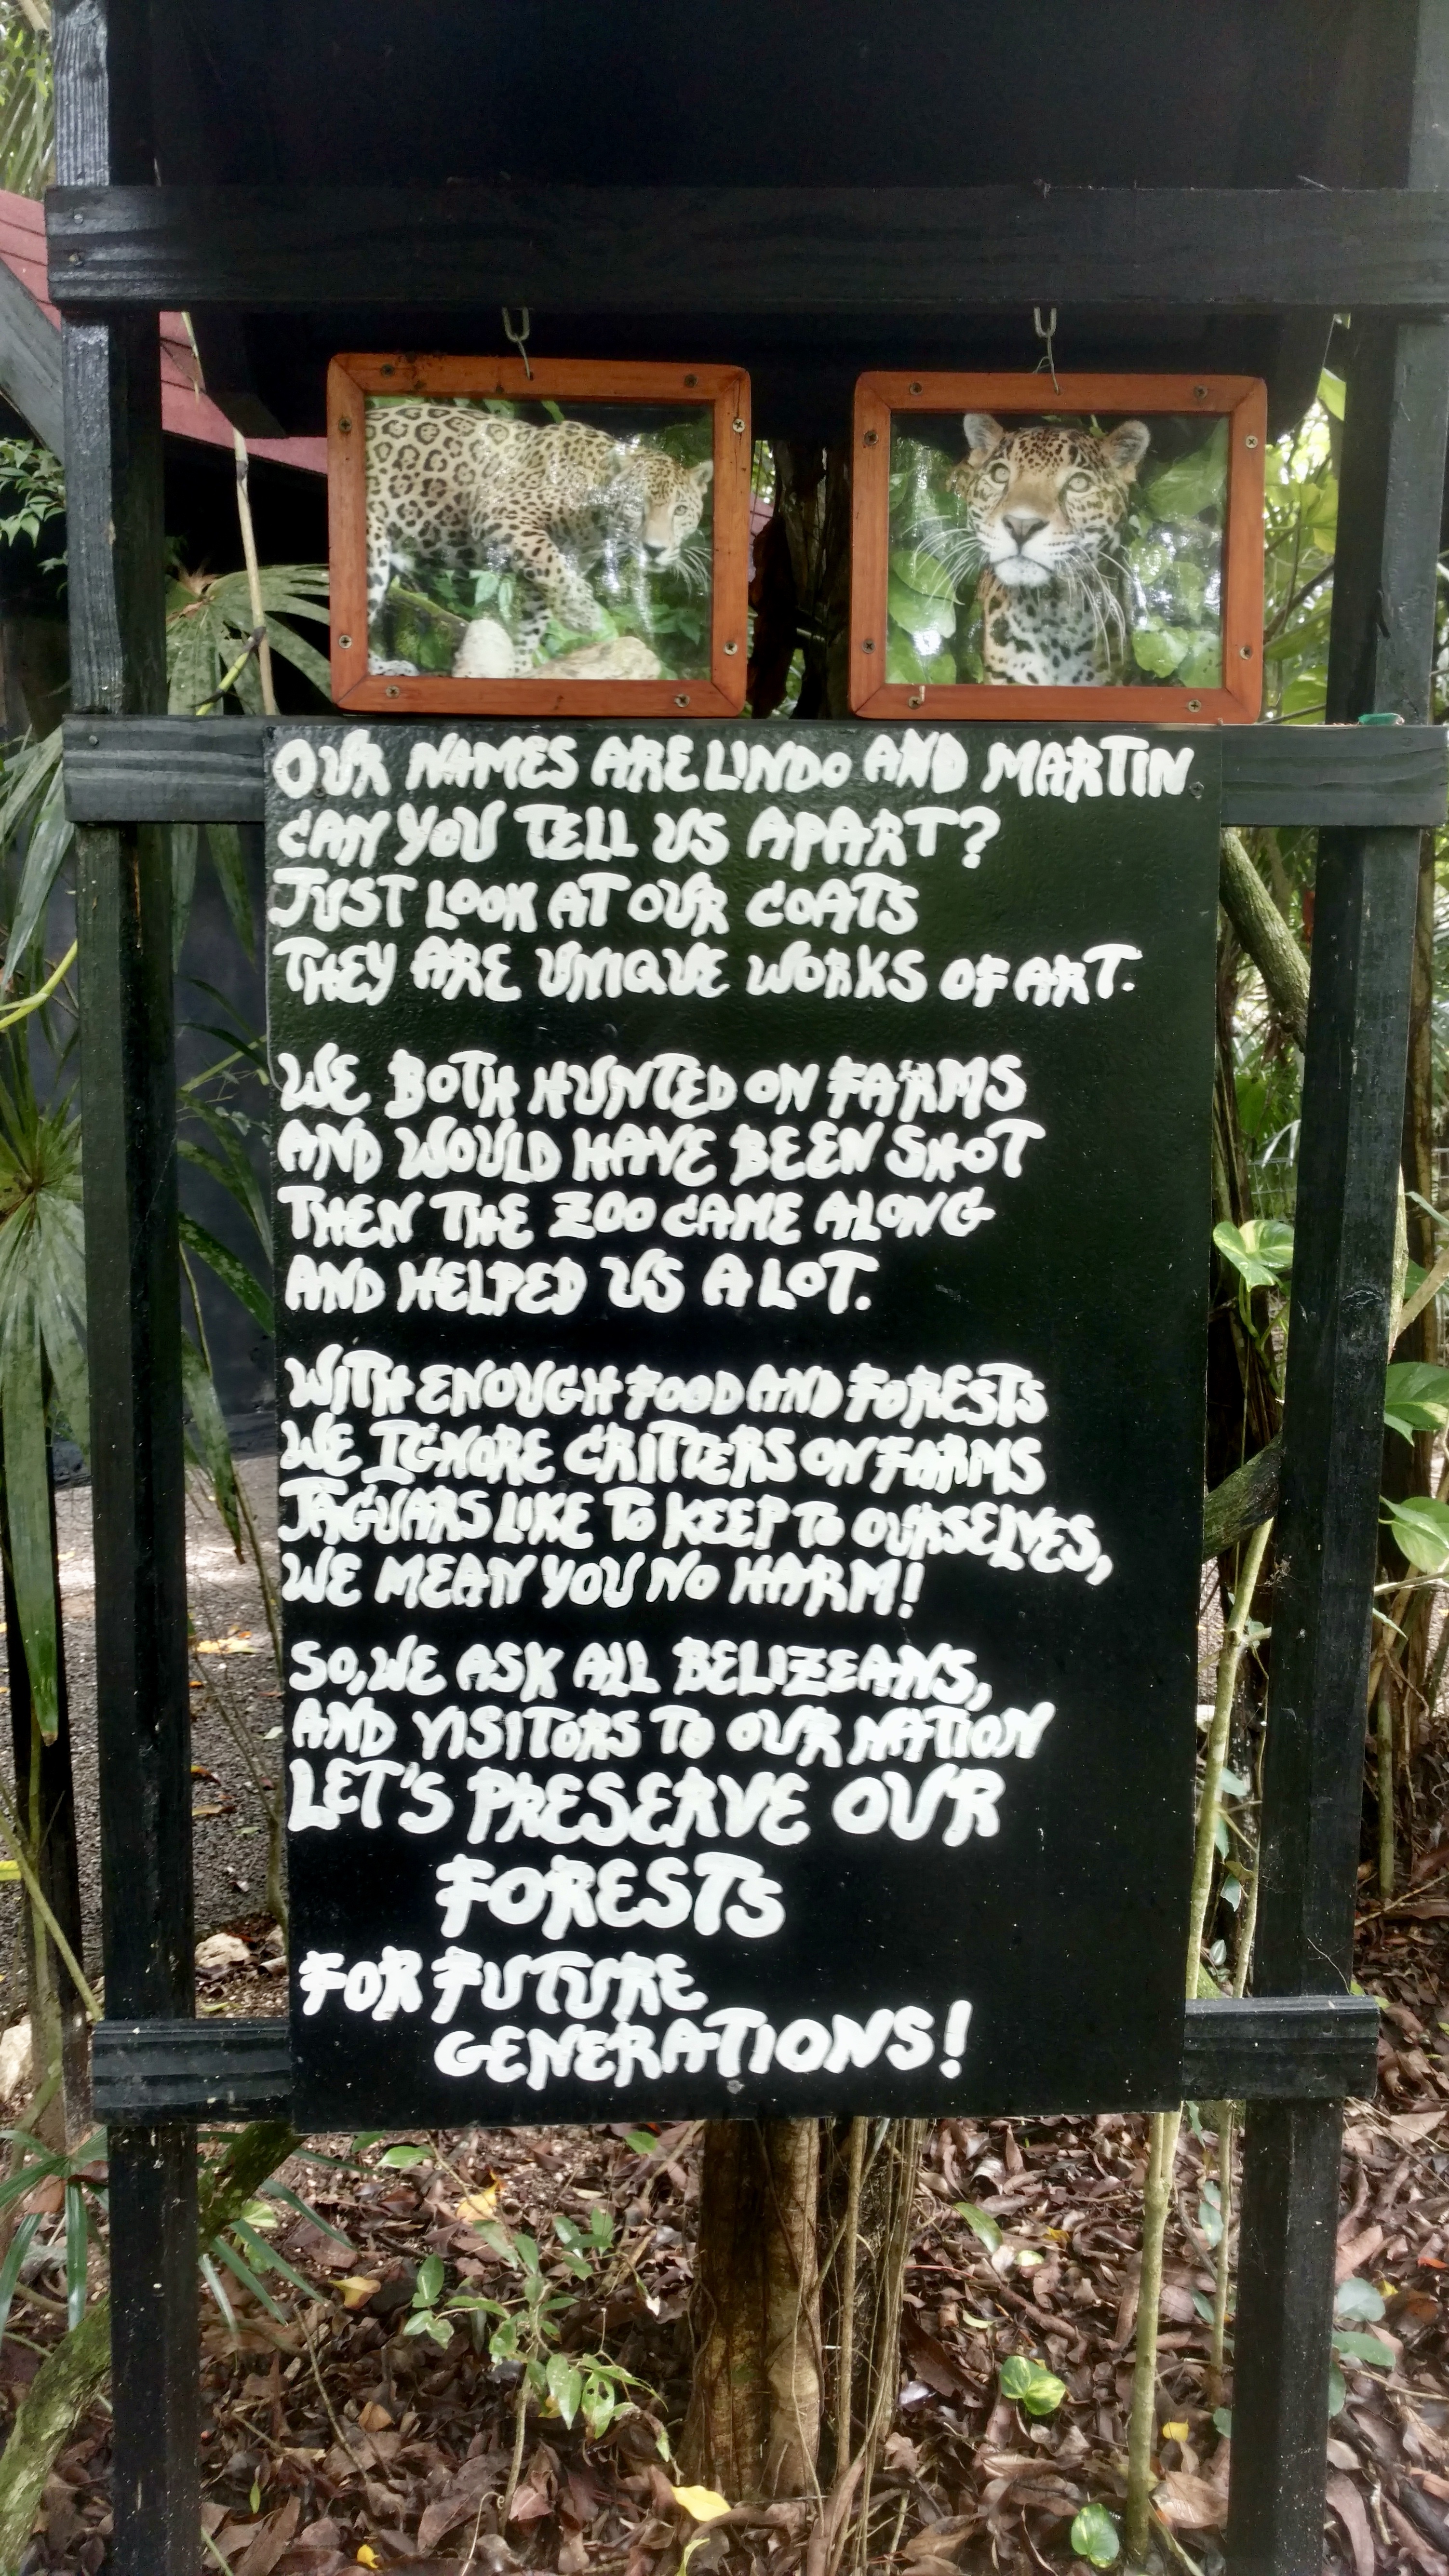 OUR NAMES ARE LINDO AND MARTIN
CAN YOU TELL US APART?
JUST LOOK AT OUR COATS
THEY ARE UNIQUE WORKS OF ART.
WE BOTH HUNTED ON FARMS
AND WOULD HAVE BEEN SHOT
THEN THE ZOO CAME ALONG
AND HELPED US A LOT.
WITH ENOUGH FOOD AND FORESTS
WE IGNORE CRITTERS ON FARMS
JAGUARS LIKE TO KEEP TO OURSELVES,
WE MEAN YOU NO HARM!
SO, WE ASK ALL BELIZEANS,
AND VISITORS TO OUR NATION
LET'S PRESERVE OUR
FORESTS
FOR FUTURE
GENERATIONS!